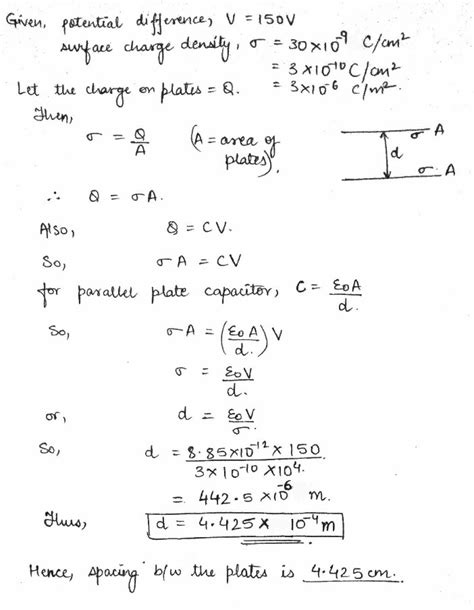 Given, potential difference, V = 150V
surface charge density, σ = 30×10⁻⁹ C/cm²
= 3×10⁻¹⁰ C/cm²
Let the charge on plates = Q. = 3×10⁻⁶ C/m².
Then,
σ = Q/A (A = area of plates).
σ A
d
σ. A
∴ Q = σA.
Also, Q = CV.
So, σA = CV
for parallel plate capacitor, C = ε₀A/d.
So, σA = (ε₀A/d.) V
σ = ε₀V/d.
or, d = ε₀V/σ.
So, d = 8.85×10⁻¹² × 150/3×10⁻¹⁰ ×10⁴.
= 442.5 ×10⁻⁶ m.
Thus, d = 4.425× 10⁻⁴ m
Hence, spacing b/w the plates is 4.425 cm.